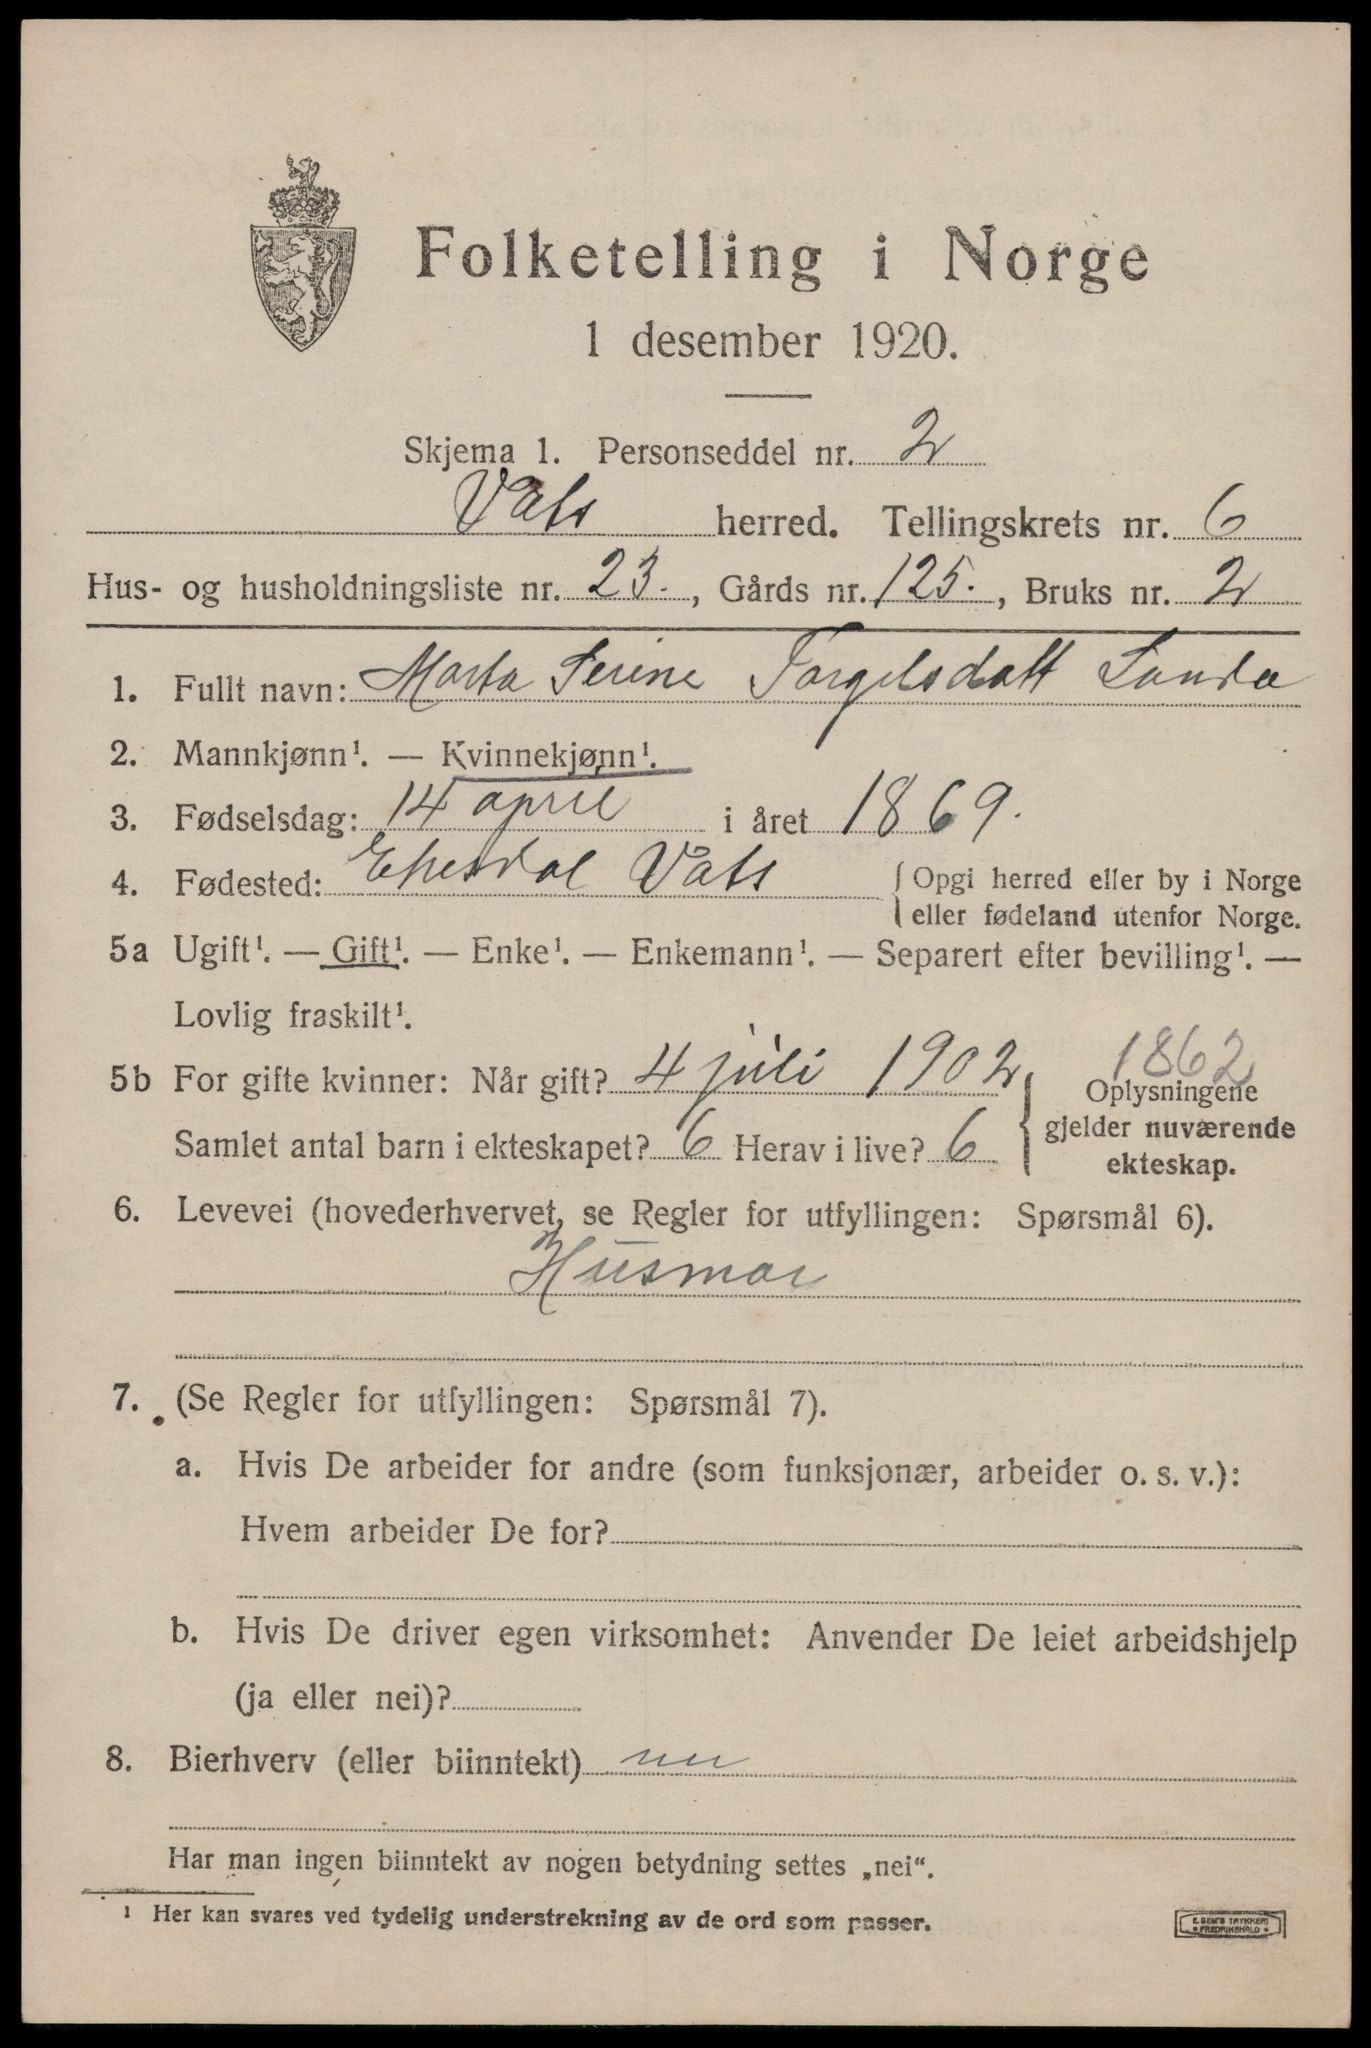 Folketelling i Norge
1 desember 1920.
Skjema 1. Personseddel nr. 2
Vats herred. Tellingskrets nr. 6
Hus- og husholdningsliste nr. 23. , Gårds nr. 125. , Bruks nr. 2
1. Fullt navn: Marta Serine Torgelsdatt Landa
2. Mannkjønn¹. — Kvinnekjønn¹.
3. Fødselsdag: 14 april i året 1869.
4. Fødested: Ekesdal Vats { Opgi herred eller by i Norge
eller fødeland utenfor Norge.
5a Ugift¹. — Gift¹. — Enke¹. — Enkemann¹. — Separert efter bevilling¹. —
Lovlig fraskilt¹.
5b For gifte kvinner: Når gift? 4 juli 1902
Samlet antal barn i ekteskapet? 6 Herav i live? 6
1862
Oplysningene
gjelder nuværende
ekteskap.
6. Levevei (hovederhvervet, se Regler for utfyllingen: Spørsmål 6).
Husmor
7. (Se Regler for utfyllingen: Spørsmål 7).
a. Hvis De arbeider for andre (som funksjonær, arbeider o. s. v.):
Hvem arbeider De for?
b. Hvis De driver egen virksomhet: Anvender De leiet arbeidshjelp
(ja eller nei)?
8. Bierhverv (eller biinntekt) nei
Har man ingen biinntekt av nogen betydning settes „nei“.
¹ Her kan svares ved tydelig understrekning av de ord som passer.
E. SEM'S TRYKKERI
FREDRIKSHALD